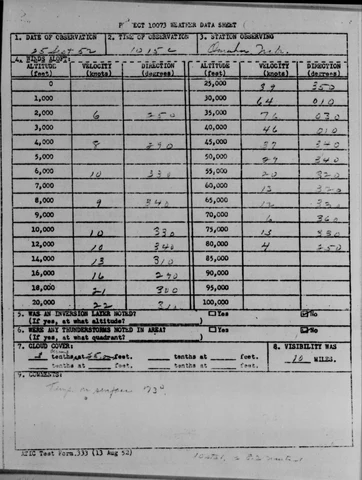 ECT 10073 WEATHER DATA SHEET
1. DATE OF OBSERVATION 2. TIME OF OBSERVATION 3. STATION OBSERVING
25 Sept 52 1015 C Omaha Neb.
4. WINDS ALOFT:
ALTITUDE (feet) VELOCITY (knots) DIRECTION (degrees) ALTITUDE (feet) VELOCITY (knots) DIRECTION (degrees)
0 25,000 39 350
1,000 30,000 64 010
2,000 6 250 35,000 76 030
3,000 40,000 46 010
4,000 8 290 45,000 37 340
5,000 50,000 27 340
6,000 10 330 55,000 20 320
7,000 60,000 13 320
8,000 9 340 65,000 12 320
9,000 70,000 6 360
10,000 10 330 75,000 13 330
12,000 10 340 80,000 4 250
14,000 13 310 85,000
16,000 16 290 90,000
18,000 21 300 95,000
20,000 22 310 100,000
5. WAS AN INVERSION LAYER NOTED? Yes No
(If yes, at what altitude? )
6. WERE ANY THUNDERSTORMS NOTED IN AREA? Yes No
(If yes, at what quadrant? )
7. CLOUD COVER: 8. VISIBILITY WAS
tenths at feet. tenths at feet. 10 MILES.
tenths at feet. tenths at feet.
9. COMMENTS: Temp on surface 73°
ATIC Test Form 333 (13 Aug 52)